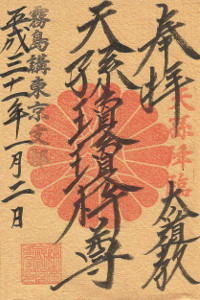 奉拝
天孫降臨
天孫瓊瓊杵尊
霧島講東京支部
平成三十一年一月二日